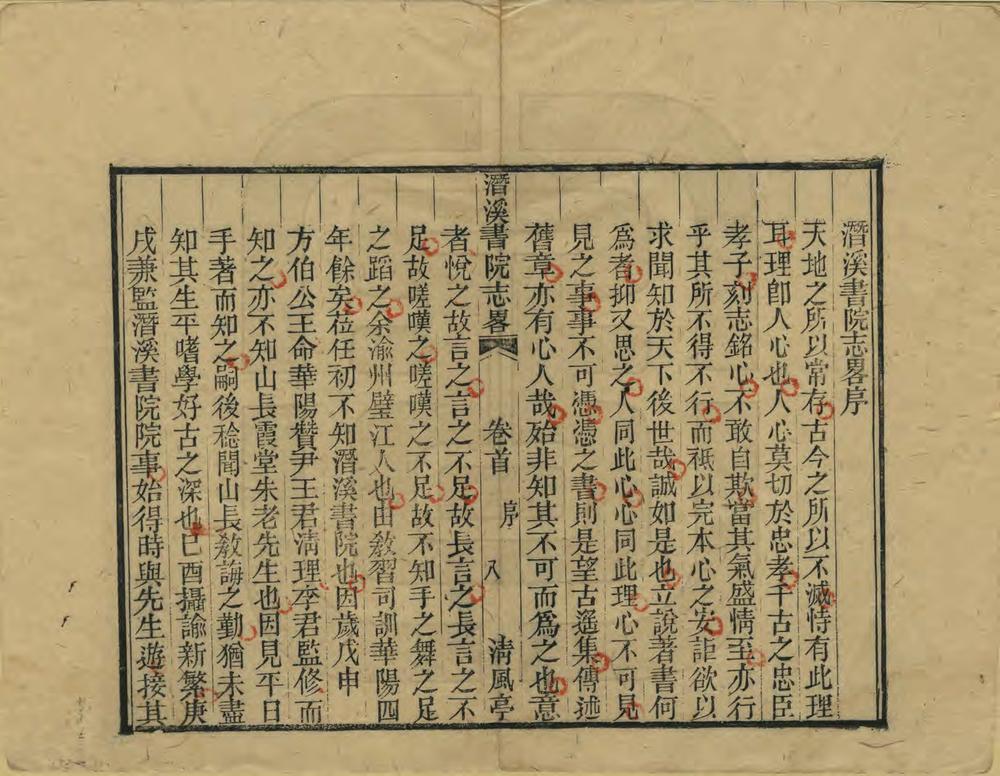 潛溪書院志畧序
天地之所以常存古今之所以不滅恃有此理
耳理卽人心也人心莫切於忠孝千古之忠臣
孝子刻志銘心不敢自欺當其氣盛情至亦行
乎其所不得不行而祗以完本心之安詎欲以
求聞知於天下後世哉誠如是也立說著書何
爲者抑又思之人同此心心同此理心不可見
見之事事不可憑憑之書則是望古遙集傳述
舊章亦有心人哉殆非知其不可而爲之也意
潛溪書院志畧 卷首 序 八 清風亭
者悅之故言之言之不足故長言之長言之不
足故嗟嘆之嗟嘆之不足故不知手之舞之足
之蹈之余渝州璧江人也由敎習司訓華陽四
年餘矣蒞任初不知潛溪書院也因歲戊申
方伯公王命華陽贊尹王君淸理李君監修而
知之亦不知山長霞堂朱老先生也因見平日
手著而知之嗣後稔聞山長敎誨之勤猶未盡
知其生平嗜學好古之深也已酉攝諭新繁庚
戌兼監潛溪書院院事始得時與先生遊接其